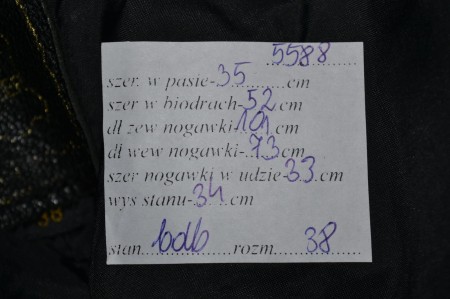 5588
szer. w pasie-35...........cm
szer w biodrach-52.cm
dł zew nogawki-101cm
dł wew nogawki-73cm
szer nogawki w udzie-33.cm
wys stanu-34.cm
stan bdb rozm. 38
38